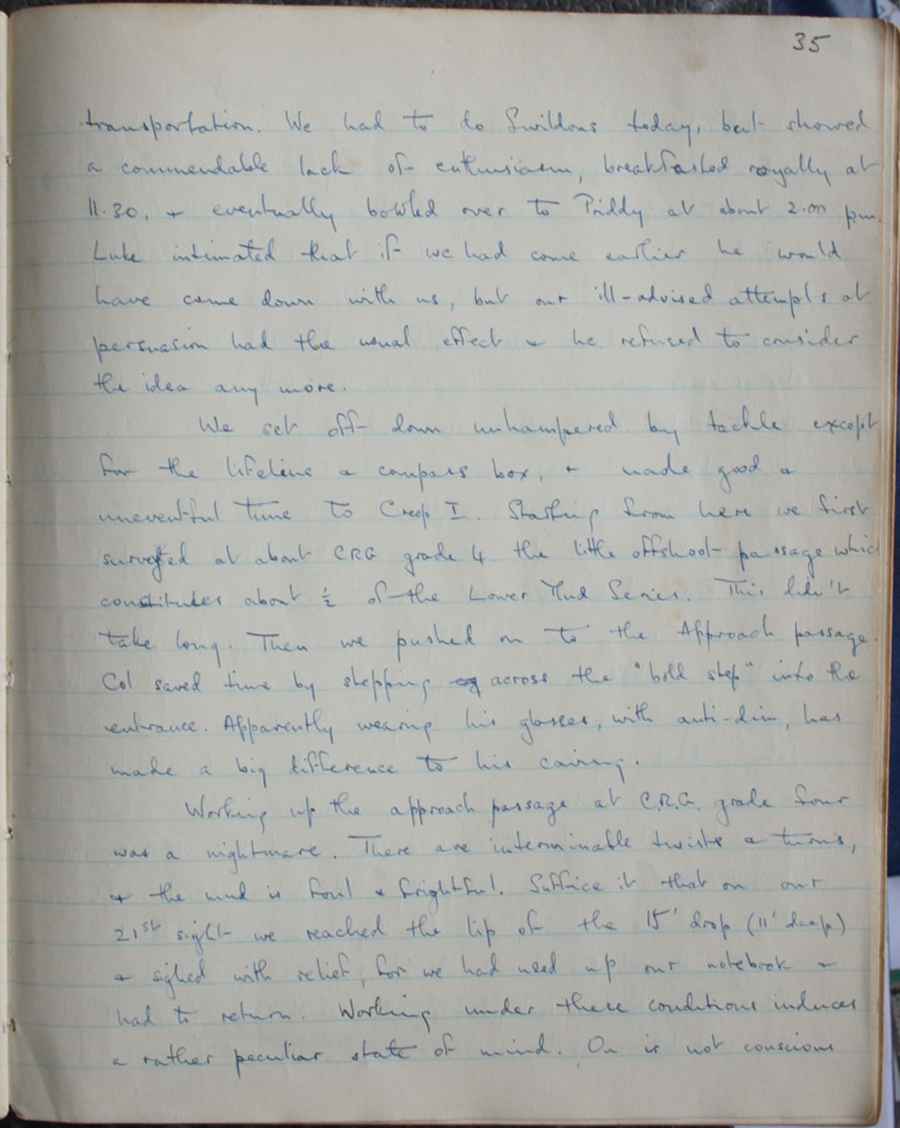 35
transportation. We had to do Swildons today, but showed
a commendable lack of enthusiasm, breakfasted royally at
11.30, & eventually bowled over to Priddy at about 2.00 pm.
Luke intimated that if we had come earlier he would
have come down with us, but our ill-advised attempts at
persuasion had the usual effect & he refused to consider
the idea any more.
We set off down unhampered by tackle except
for the lifeline & compass box, & made good &
uneventful time to Creep I. Starting from here we first
surveyed at about CRG grade 4 the little offshoot passage which
constitutes about ½ of the Lower Mud Series. This didn't
take long. Then we pushed on to the Approach passage.
Col saved time by stepping across the "bold step" into the
entrance. Apparently wearing his glasses, with anti-dim, has
made a big difference to his caving.
Working up the approach passage at C.R.G. grade four
was a nightmare. There are interminable twists & turns,
& the mud is foul & frightful. Suffice it that on our
21st sight we reached the lip of the 15' drop (11' deep)
& sighed with relief, for we had used up our notebook &
had to return. Working under these conditions induces
a rather peculiar state of mind. On is not conscious